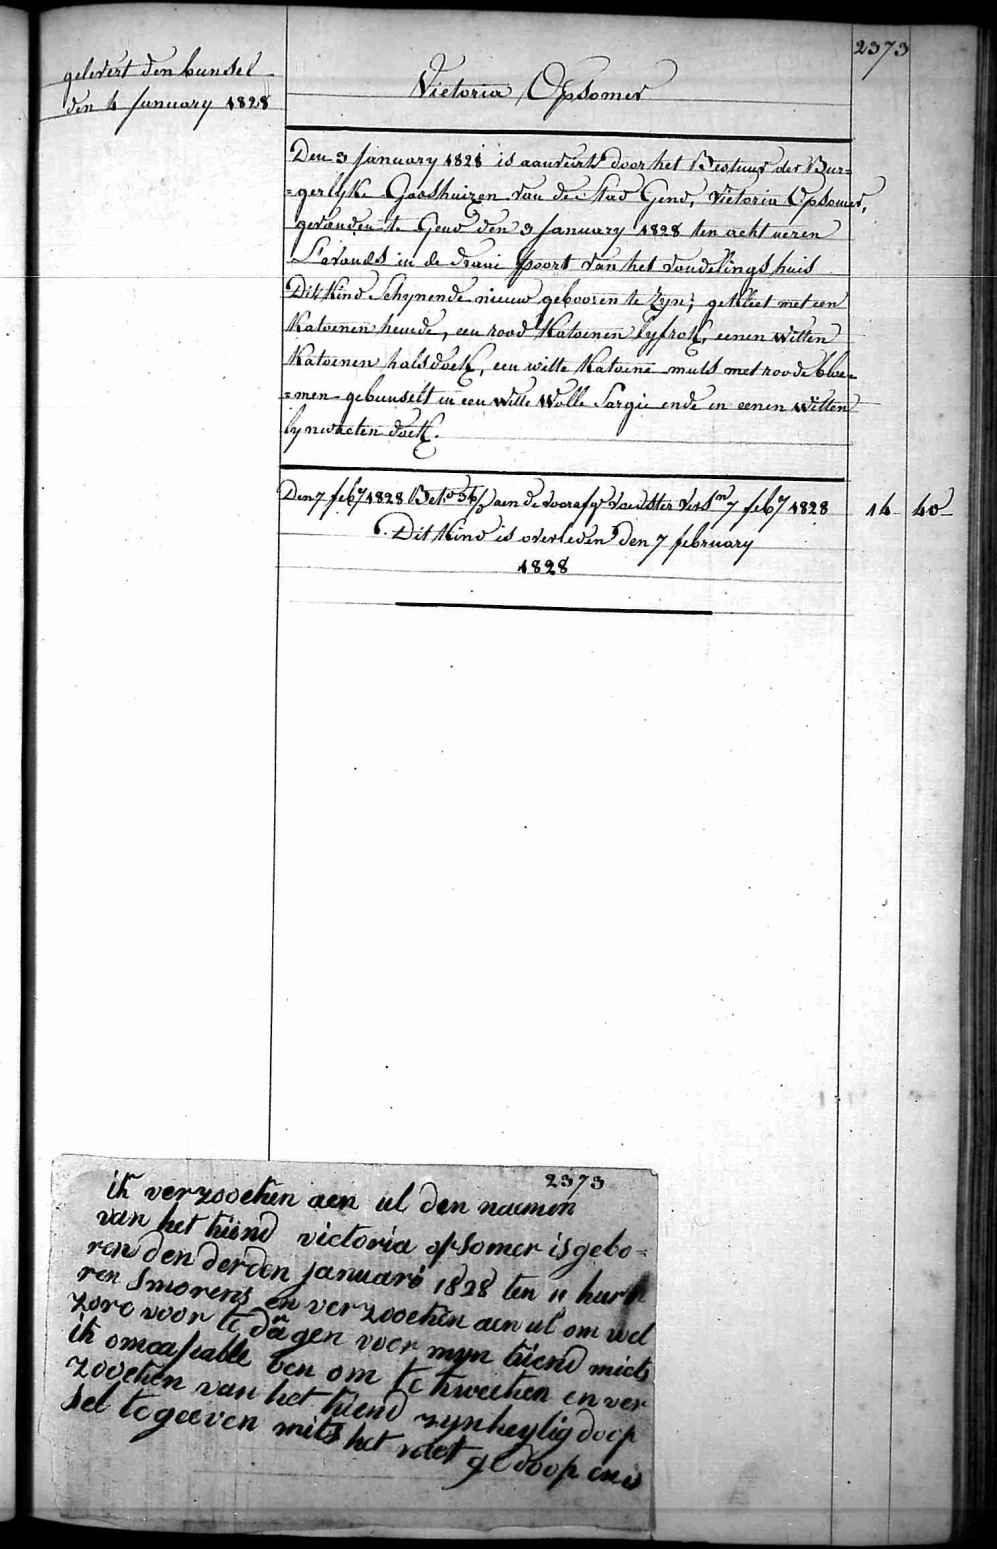 2373
gelevert den bunsel
den 4 January 1828
Victoria Opsomer
Den 3 January 1828 is aanveirt door het Bestuur der Bur=
=gerlyke Godshuizen van de stad Gend, Victoria Opsomer,
gevonden te Gend den 3 January 1828 ten acht ueren
S'avonds in de draai poort van het vondelings huis
Dit Kind Schynende nieuw gebooren te Zyn; gekleet met een
Katoenen hemde, een rood Katoenen lyfrok, eenen witten
Katoenen halsdoek, een witte Katoene muts met roode bloe=
=men gebunselt in een witte Wolle Sargie ende in eenen witten
lynwaeten doek.
Den 7 feby 1828 aen de voorsz voedster 7 feby 1828 14 40
Dit Kind is overleden den 7 february
1828
2373
ik verzooeken aen ul den naemen
van het kiend victoria opsomer is gebo=
ren den derden januari 1828 ten 11 huren
ren smorens en verzooeken aen ul om wel
zorg voor te dragen voor myn kiend miets
ik omcapiable ben om te kweeken en ver
zooeken van het kiend zyn heylig doop
sel te geeven mits het niet gedoopen is